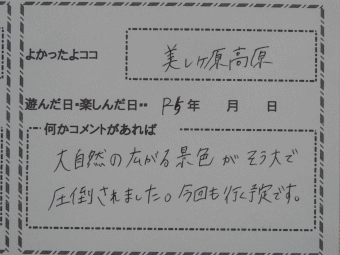 よかったよココ
美しヶ原高原
遊んだ日・楽しんだ日・・ R5年 月 日
何かコメントがあれば
大自然の広がる景色がそう大で
圧倒されました。今回も行く予定です。